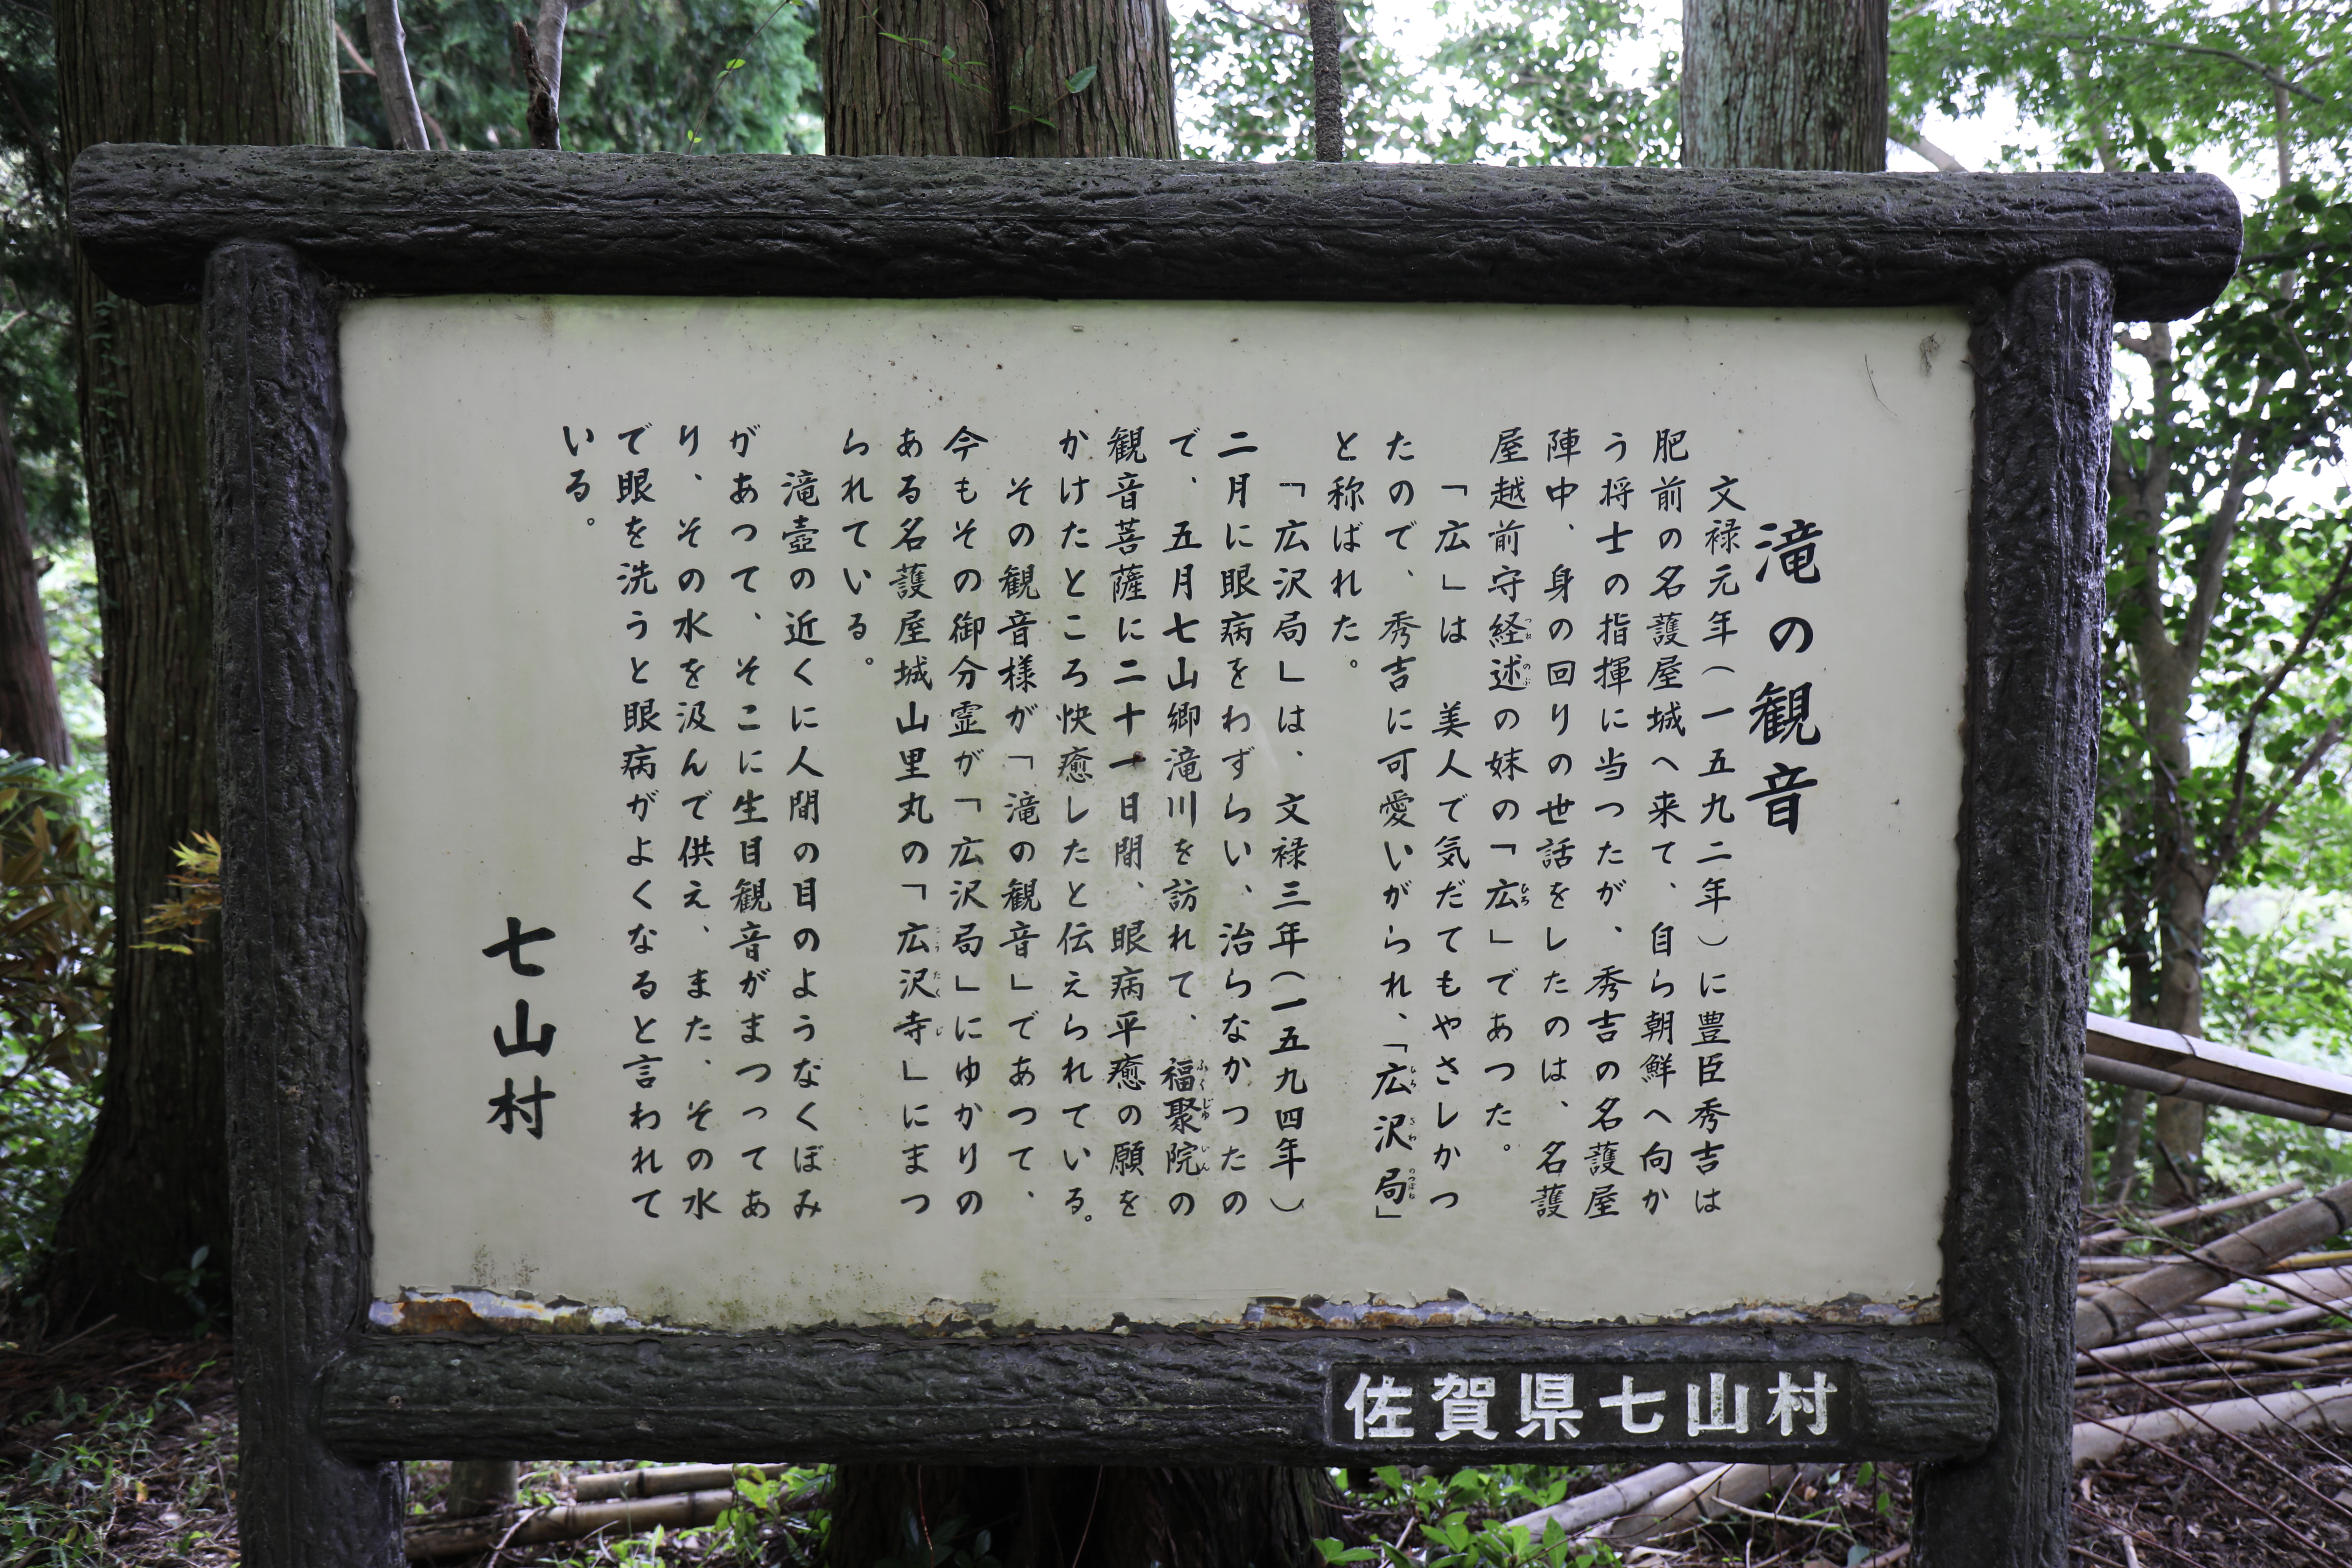 滝の観音
文禄元年(一五九二年)に豊臣秀吉は
肥前の名護屋城へ来て、自ら朝鮮へ向か
う将士の指揮に当つたが、秀吉の名護屋
陣中、身の回りの世話をしたのは、名護
屋越前守経述の妹の「広」であつた。
「広」は 美人で気だてもやさしかつ
たので、秀吉に可愛いがられ、「広沢局」
と称ばれた。
「広沢局」は、文禄三年(一五九四年)
二月に眼病をわずらい、治らなかつたの
で、五月七山郷滝川を訪れて、福聚院の
観音菩薩に二十一日間、眼病平癒の願を
かけたところ快癒したと伝えられている。
その観音様が「滝の観音」であつて、
今もその御分霊が「広沢局」にゆかりの
ある名護屋城山里丸の「広沢寺」にまつ
られている。
滝壺の近くに人間の目のようなくぼみ
があつて、そこに生目観音がまつってあ
り、その水を汲んで供え、また、その水
で眼を洗うと眼病がよくなると言われて
いる。
七山村
佐賀県七山村